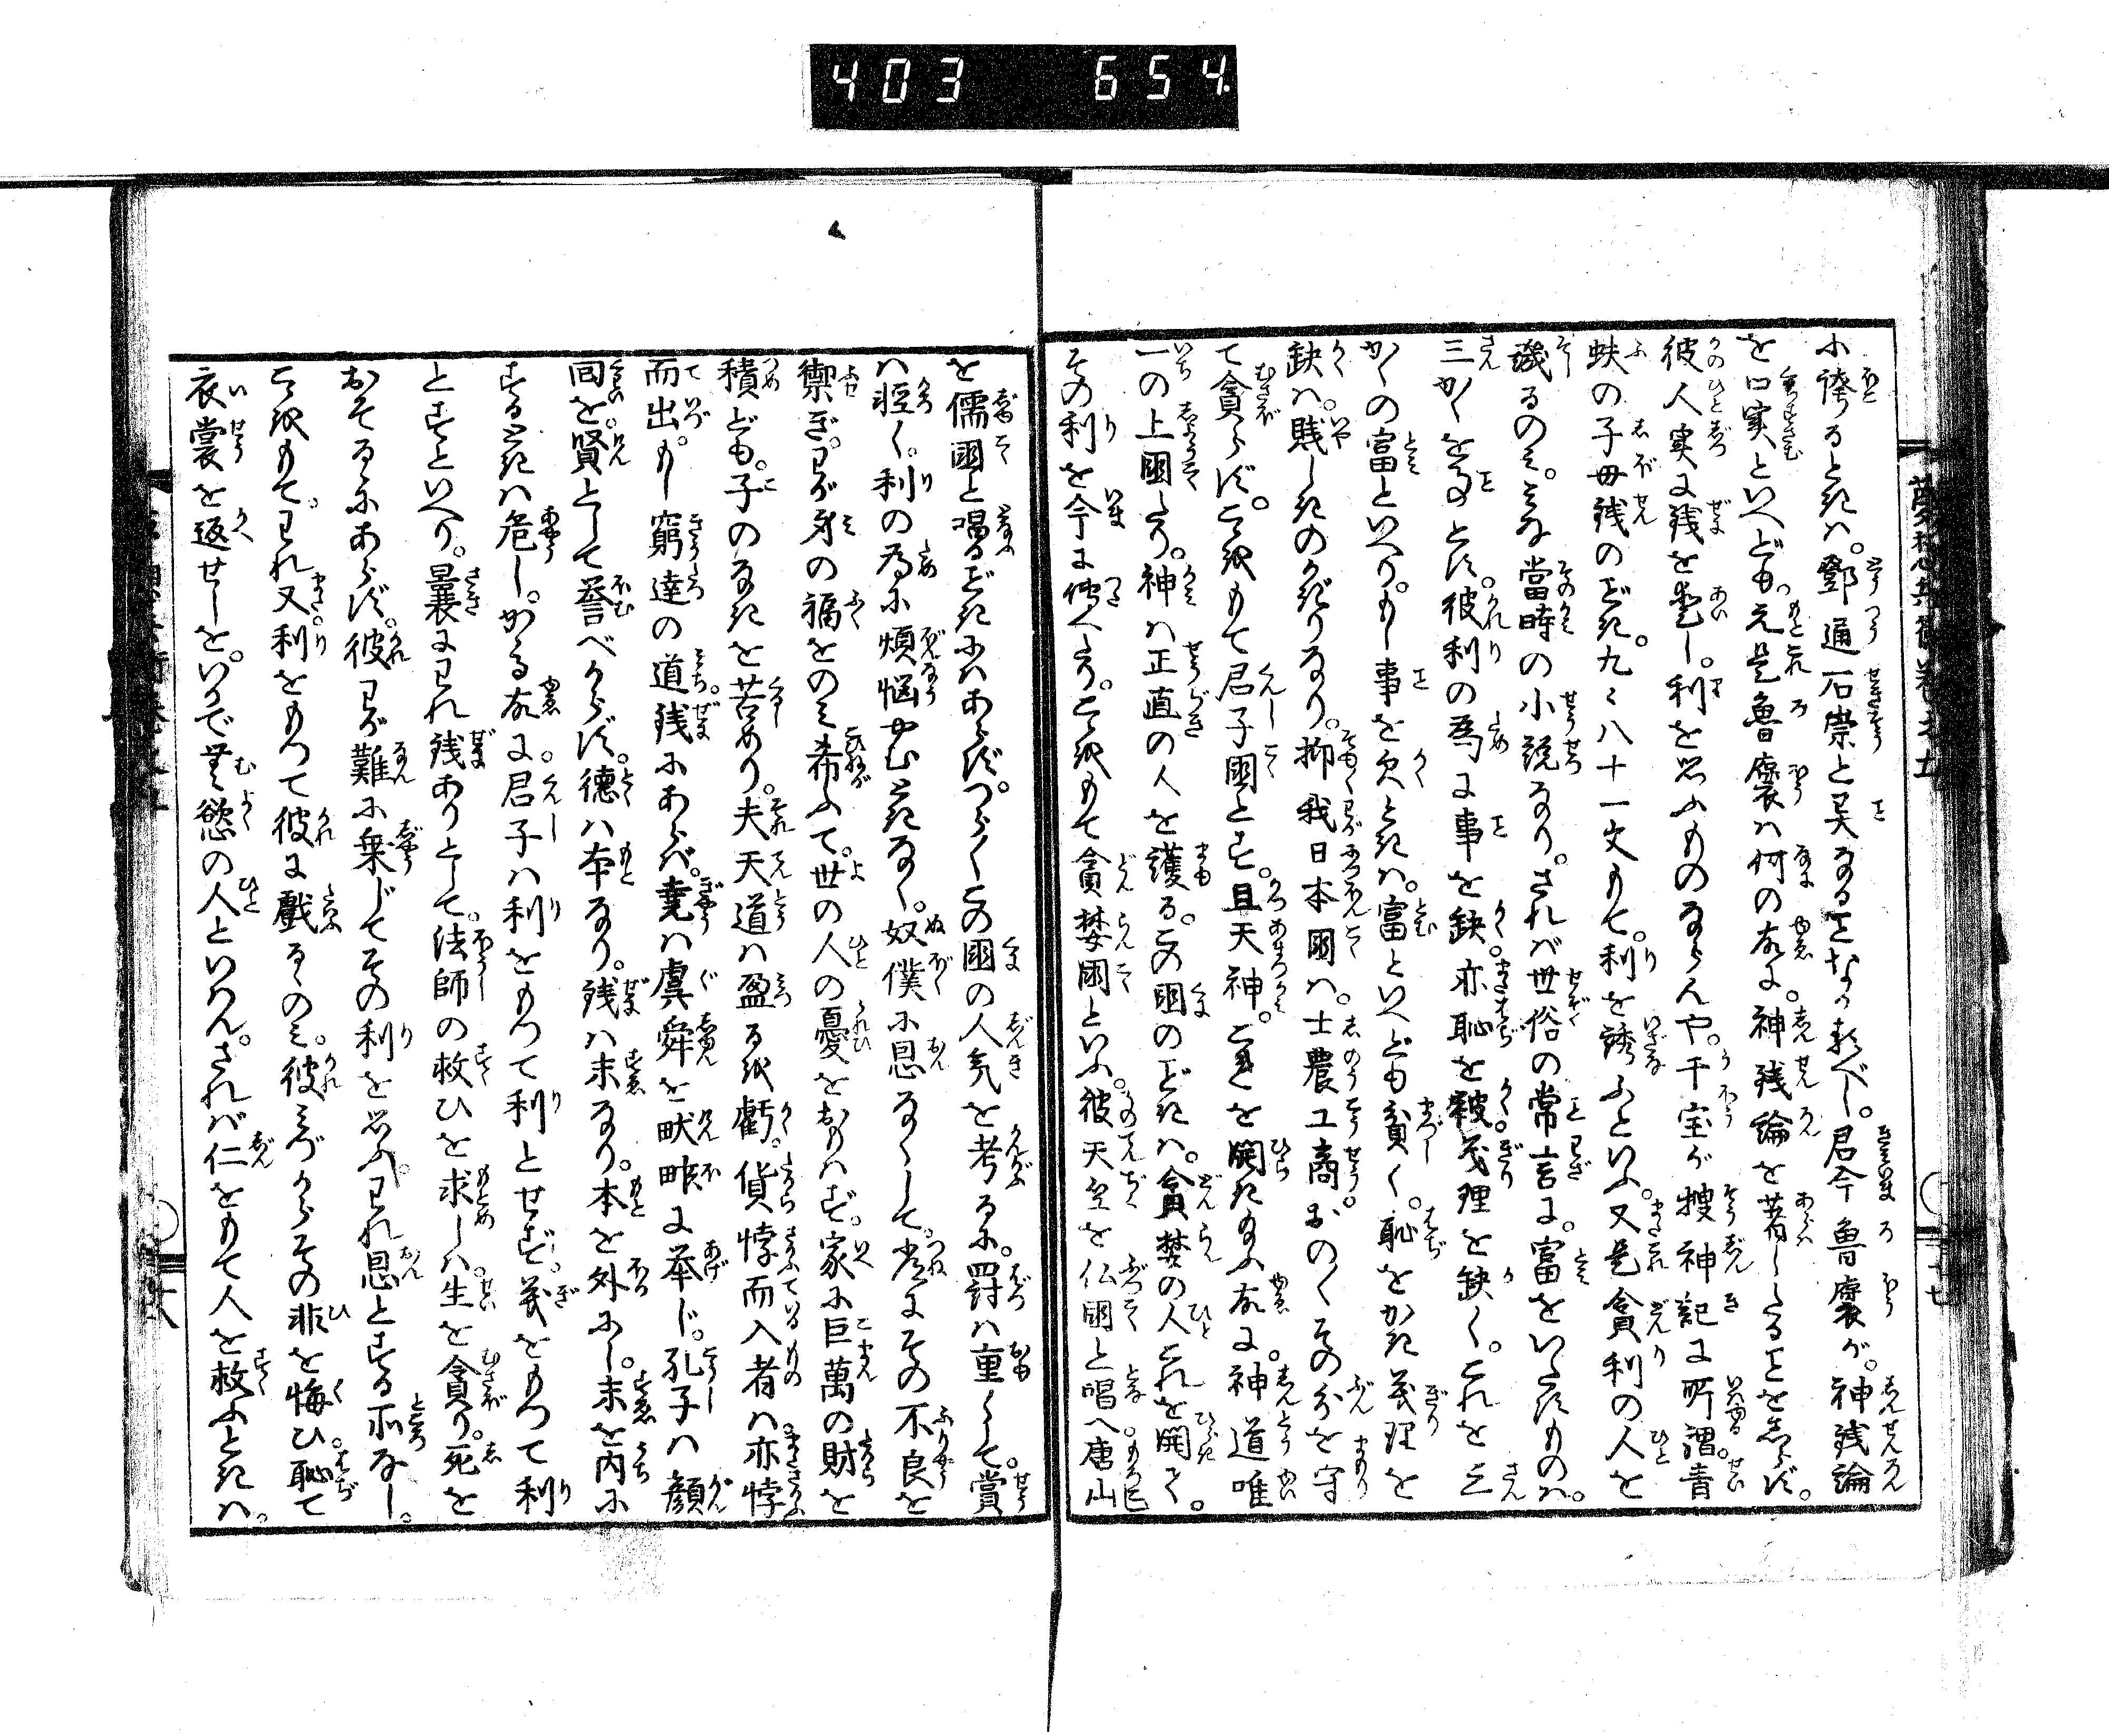 403 654.
夢想兵衛
に誇るときは。鄧通石崇と異なることなかるべし。君今魯褒が。神銭論
を口実といへども元是魯褒は何の故に。神銭論を著したることをしらず。
彼人実に銭を愛し。利を思ふものならんや。干宝が捜神記に所謂。青
蚨の子母銭のごとき。九々八十一文もて。利を誘ふといふ。又是貪利の人を
譏るのみ。みな當時の小説なり。されば世俗の常言に。富をいたすものは。
三かくをもとす。彼利の為に事を缺。亦恥を缺。義理を缺く。これを三
かくの富といへり。もし事を欠ときは。富といへども貧く。恥をかき義理を
缺は。賎しきのかぎりなり。抑我日本國は。士農工商おのくその分を守
て貪らず。こゝをもて君子國とす。且天神。こゝを開きたまふ故に。神道唯
一の上國たり。神は正直の人を護る。この國のごときは。貪婪の人これを開く。
その利を今に傳へたり。こゝをもて貪婪國といふ。彼天竺を仏國と唱へ唐山
を儒國と唱るごときにはあらず。つらくこの國の人気を考るに。罸は重くして。賞
は軽く。利の為に煩悩やむときなく。奴僕に恩なくして。常にその不良を
禦ぎ。わが身の福をのみ希ふて。世の人の憂をおもはず。家に巨萬の財を
積ども。子のなきを苦めり。夫天道は盈るを虧。貨悖而入者は亦悖
而出。もし窮達の道。銭にあらば。堯は虞舜を畎畆に挙じ。孔子は顔
回を。賢として誉べからず。徳は本なり。銭は末なり。本を外にし。末を内に
するときは危し。かゝる故に。君子は利をもつて利とせず。義をもつて利
とすといへり。曩にわれ銭ありとして。法師の救ひを求しは。生を貪り。死を
おそるゝにあらず。彼わが難に乗じてその利を思ふ。われ恩とする所なし。
こゝをもて。われ又利をもつて彼に戯るゝのみ。彼みづからその非を悔ひ。恥て
衣裳を返せしを。いかで無慾の人といはん。されば仁をもて人を救ふときは。